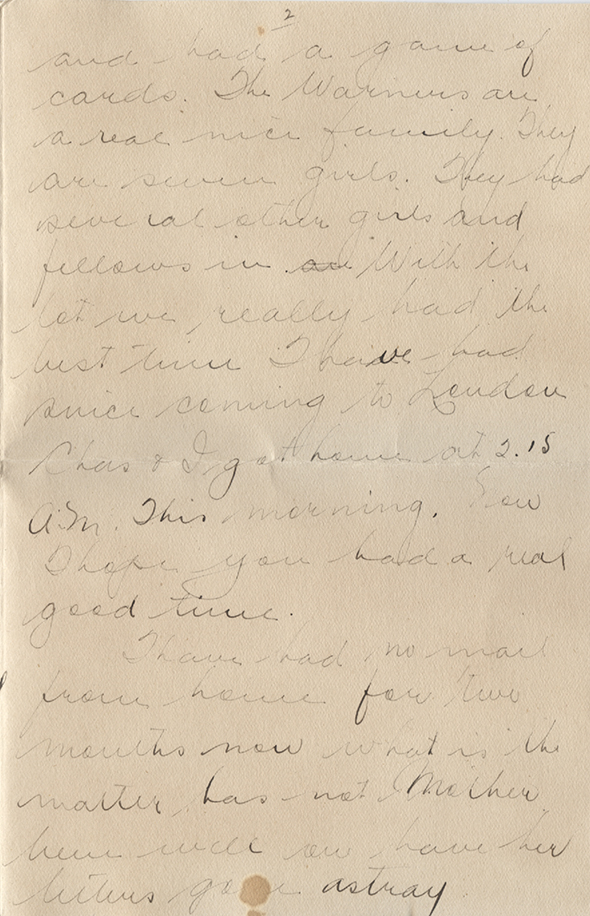 2
and had a game of
cards. The Warners are
a real nice family. They
are seven girls. They had
several other girls and
fellows in. With the
lot we really had the
best time I have had
since coming to London
Chas & I got home at 2.15
A.M. This morning. Now
I hope you had a real
good time.
I have had no mail
from home for two
months now what is the
matter has not Mother
been well or have her
letters gone astray.